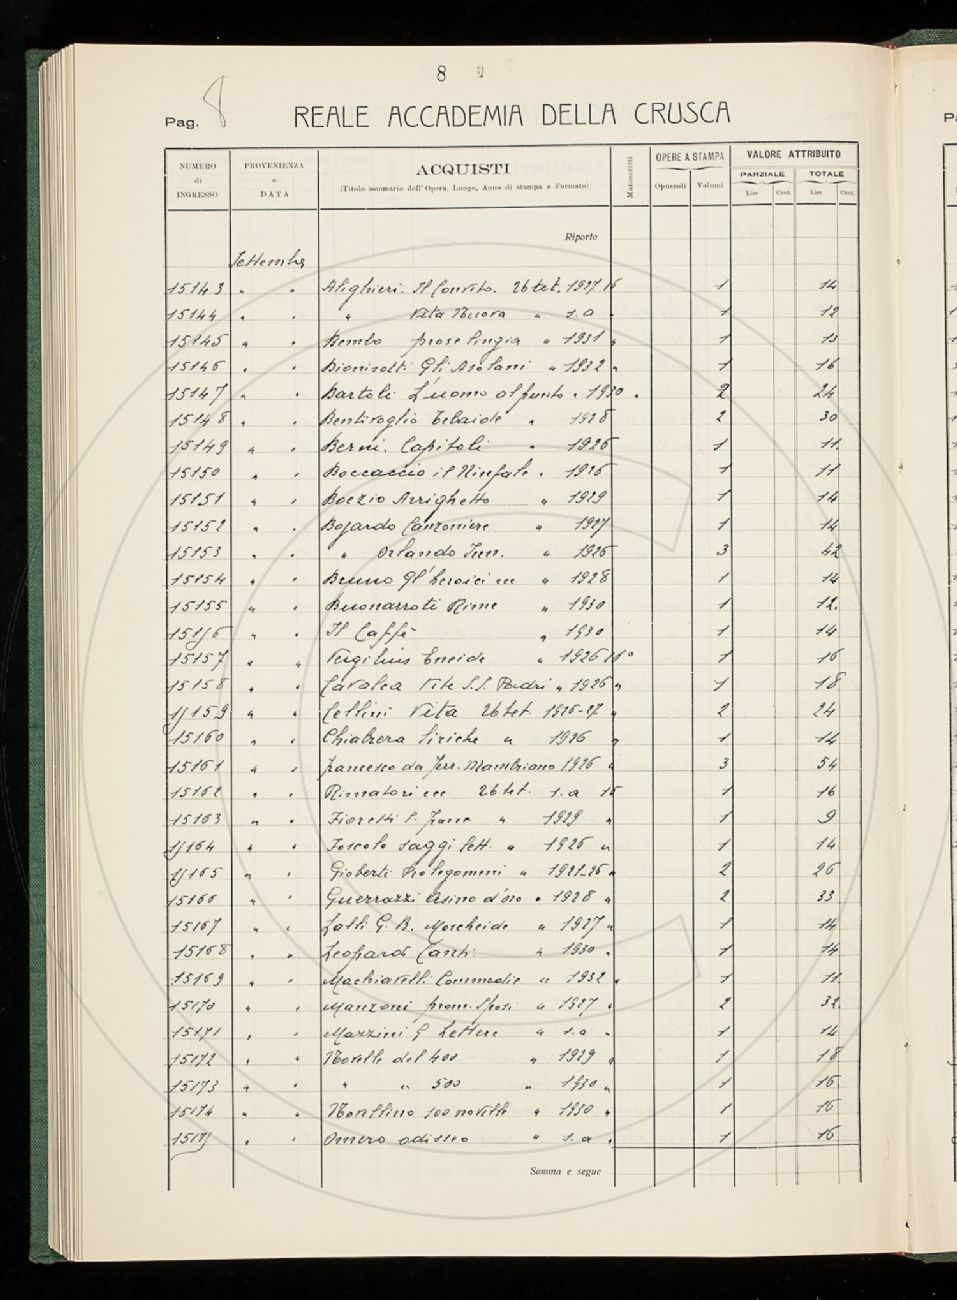 8
Pag. 8
REALE ACCADEMIA DELLA CRUSCA
NUMERO di INGRESSO PROVENIENZA e DATA ACQUISTI (Titolo sommario dell'Opera, Luogo, Anno di stampa e Formato) Manoscritti OPERE A STAMPA Opuscoli Volumi VALORE ATTRIBUITO PARZIALE Lire Cent. TOTALE Lire Cent.
Riporto
Settembre
15143 " " Alighieri. Il Convito. Utet. 1927 16 1 14
15144 " " " Vita Nuova " s.a " 1 12
15145 " " Bembo prose lingia " 1931 " 1 13
15146 " " Gli Asolani " 1932 " 1 16
15147 " " Bartoli L'uomo al punto " 1930 " 2 24
15148 " " Bentivoglio Tebaide " 1928 2 30
15149 " " Berni. Capitoli " 1926 1 11
15150 " " Boccaccio il Ninfale " 1926 1 11
15151 " " Boezio Arrighetto " 1929 1 14
15152 " " Bojardo Canzoniere " 1927 1 14
15153 " " " Orlando Inn. " 1926 3 42
15154 " " Bruno Gl'heroici " 1928 1 14
15155 " " Buonarroti Rime " 1930 1 12.
15156 " " Il Caffè " 1930 1 14
15157 " " Vergilius Eneide " 1926 16° 1 16
15158 " " Cavalca Vite S.S. Padri " 1926 " 1 18
15159 " " Cellini Vita Utet 1926-27 " 2 24
15160 " " Chiabrera liriche " 1926 " 1 14
15161 " " Francesco da Ferr. Mambriano 1926 " 3 54
15162 " " Rimatori Utet. s.a 16 1 16
15163 " " Fioretti S. Franc " 1929 " 1 9
15164 " " Foscolo saggi lett. " 1926 " 1 14
15165 " " Gioberti Prolegomeni " 1921-26 " 2 26
15166 " " Guerrazzi Asino d'oro " 1928 " 2 33
15167 " " Lalli G. B. Moscheide " 1927 " 1 14
15168 " " Leopardi Canti. " 1930 " 1 14
15169 " " Machiavelli Commedie " 1932 " 1 11
15170 " " Manzoni prom. Sposi " 1927 " 2 32.
15171 " " Mazzini G Lettere " s.a " 1 14
15172 " " Novelle del 400 " 1929 " 1 18
15173 " " " " 500 " 1930 " 1 16
15174 " " Novellino 100 novelle " 1930 " 1 16
15175 " " Omero odissea " s.a " 1 16
Somma e segue